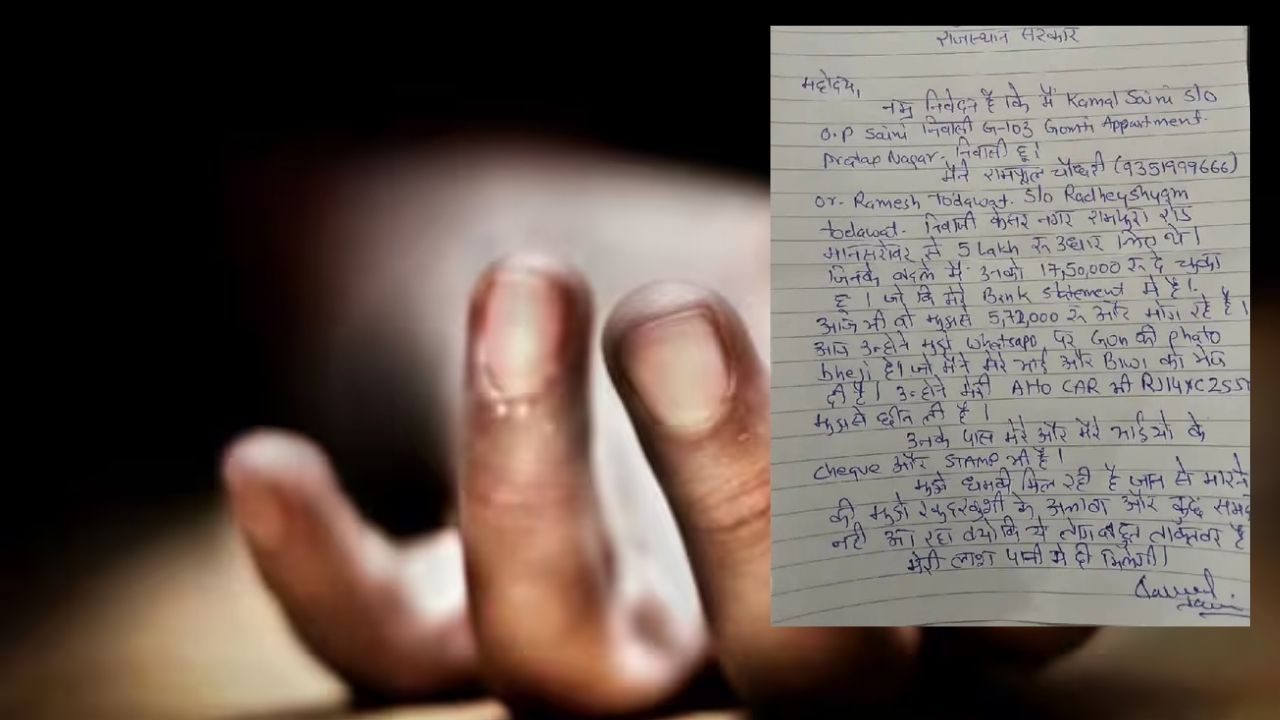 राजस्थान सरकार
महोदय,
नम्र निवेदन है कि मैं Kamal Saini S/O
O.P Saini निवासी G-103 Gomti Appartment.
Pratap Nagar. निवासी हू।
मैने रामफूल चौधरी (9351999666)
or. Ramesh Todawat. S/o Radheyshyam
todawat. निवासी केसर नगर रामपुरा रोड
मानसरोवर से 5 Lakh रू उधार लिए थे।
जिनके बदले में उनको 17,50,000 रू दे चुका
हू। जो कि मेरे Bank statement में है।
आज भी वो मुझसे 5,72,000 रू और मांग रहे है।
आज उन्होने मुझे whatsapp पर Gun की photo
bheji है। जो मैंने मेरे भाई और Biwi को भेज
दी है। उन्होने मेरी CAR भी
मुझसे छीन ली है।
उनके पास मेरे और मेरे भाईयो के
cheque और STAMP भी है।
मुझे धमकी मिल रही है जान से मारने
की मुझे खुदखुशी के अलावा और कुछ समझ
नही आ रहा क्योकि ये लोग बहुत ताकतवर है
मेरी लाश पानी मे ही मिलेगी।